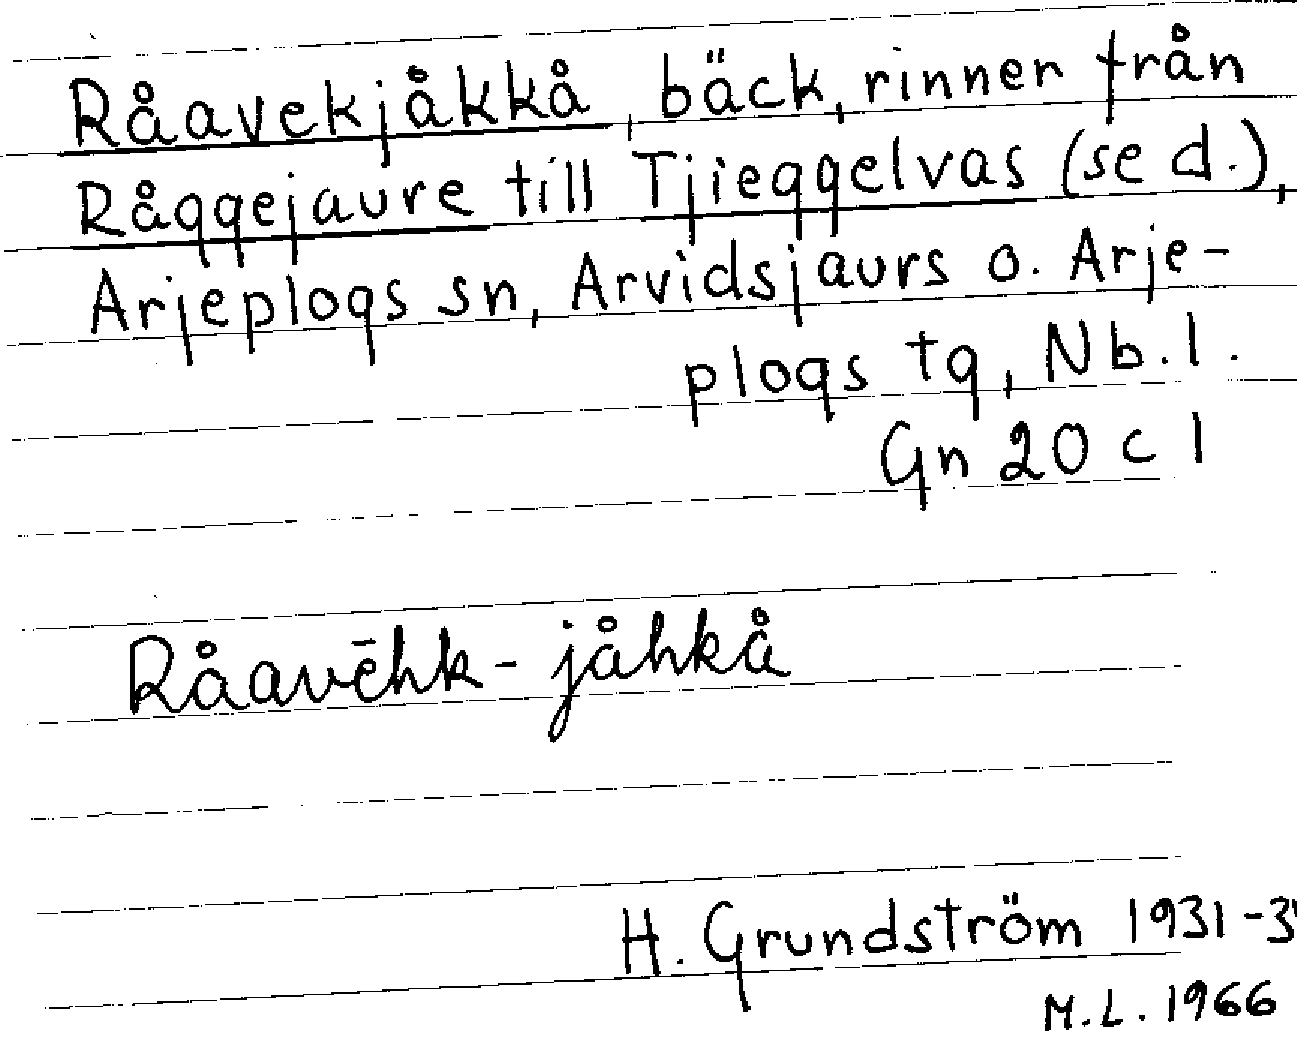 Råavekjåkkå, bäck, rinner från
Råggejaure till Tjieggelvas (se d.),
Arjeplogs sn, Arvidsjaurs o. Arje-
plogs tg, Nb. l.
Gn 20 c 1
Råavēhk-jåhkå
H. Grundström 1931-3
M.L. 1966